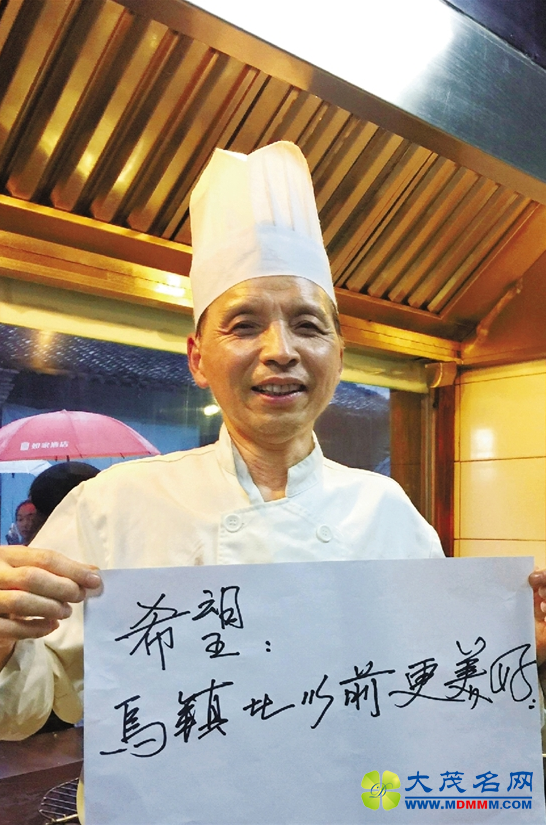 如家酒店
希望:
烏鎮比以前更美好.
大茂名网
WWW.MDMMM.COM